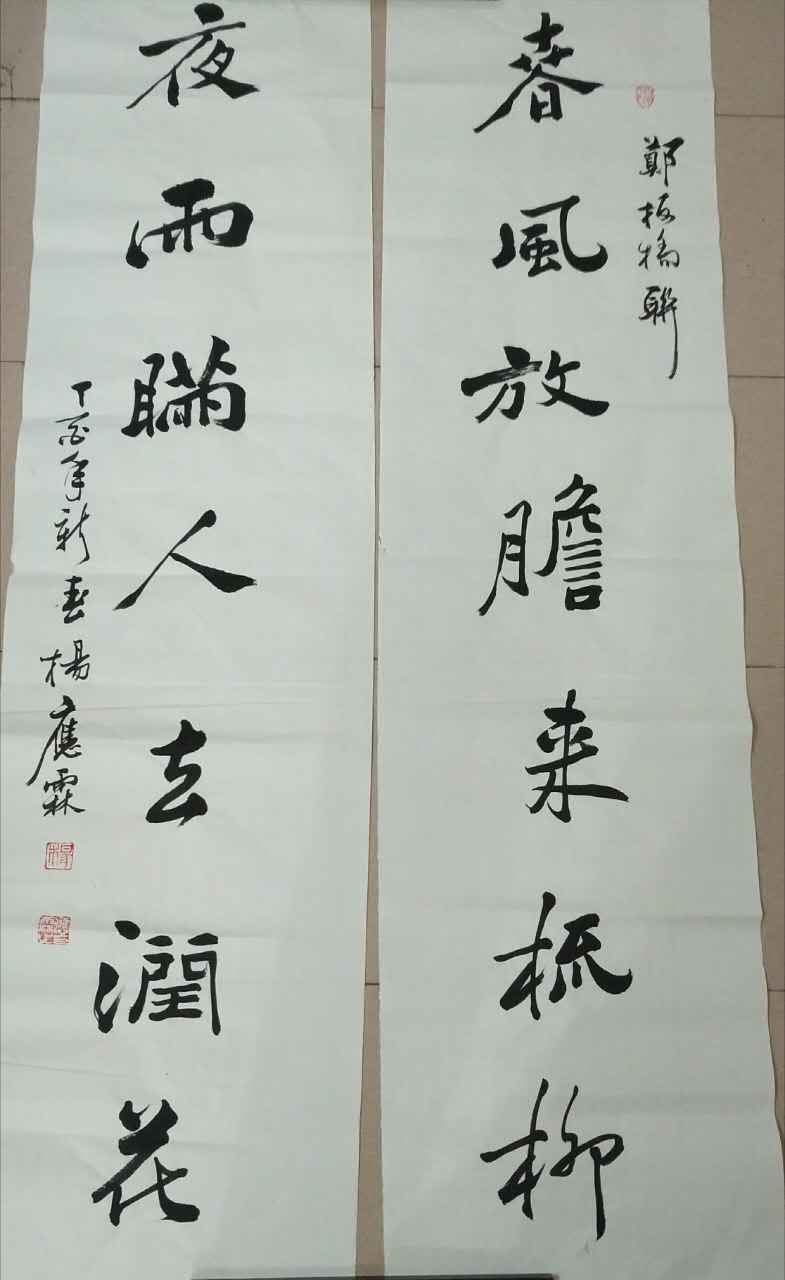 鄭板橋聯
春風放膽来梳柳
夜雨瞞人去潤花
丁酉年新春楊應霖